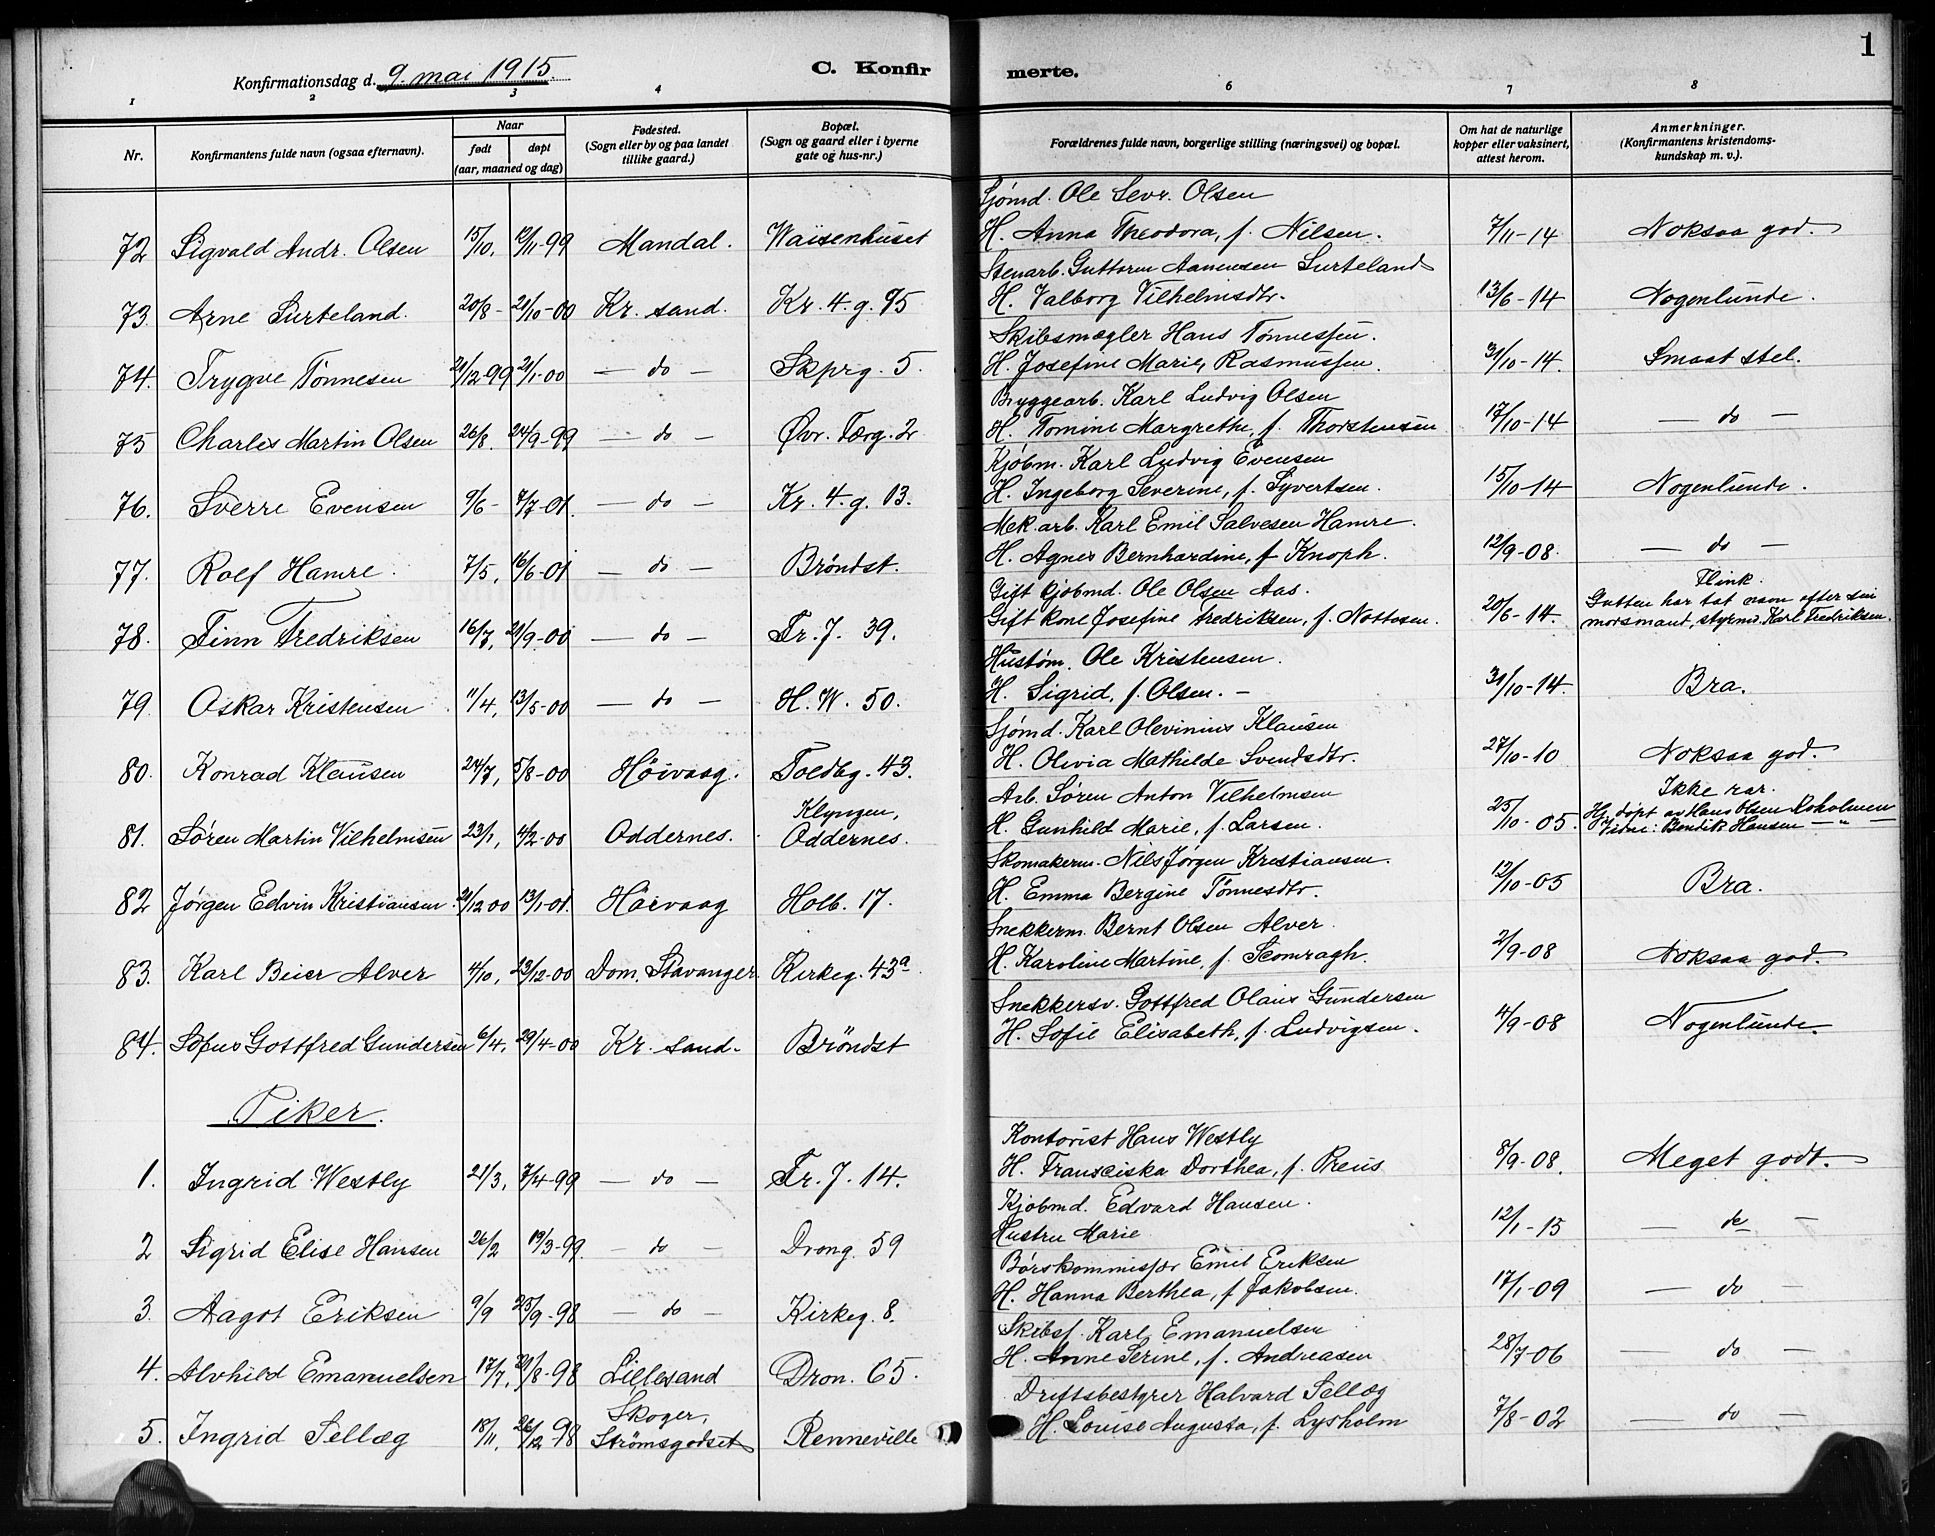 1
Konfirmationsdag d. 9. mai 1915.
C. Konfirmerte.
1 2 3 4 6 7 8
Nr.
Konfirmantens fulde navn (ogsaa efternavn).
Naar
født døpt
(aar, maaned og dag)
Fødested.
(Sogn eller by og paa landet
tillike gaard.)
Bopæl.
(Sogn og gaard eller i byerne
gate og hus-nr.)
Forældrenes fulde navn, borgerlige stilling (næringsvei) og bopæl.
Om hat de naturlige
kopper eller vaksinert,
attest herom.
Anmerkninger.
(Konfirmantens kristendoms-
kundskap m. v.).
Sjømd. Ole Sevr. Olsen
72 Sigvald Andr. Olsen 15/10, 12/11-99 Mandal. Waisenhuset H. Anna Theodora, f. Nilsen. 7/11-14 Noksaa god.
Stenarb. Guttorm Aanensen Surteland
73. Arne Surteland. 20/8- 21/10-00 Kr. sand. Kr. 4. g. 95 H. Valborg Vilhelmsdtr. 13/6-14 Nogenlunde.
Skibsmægler Hans Tønnessen.
74. Trygve Tønnesen 21/12-99 21/1-00 — do — Skprg. 5. H. Josefine Marie, Rasmussen. 31/10-14. Smaat stel.
Bryggearb. Karl Ludvig Olsen
75 Charles Martin Olsen 26/8. 24/9-99 — do — Øvr. Tærg. 2 H. Tomine Margrethe, f. Thorstensen 17/10-14 — do —
Kjøbm. Karl Ludvig Evensen
76. Sverre Evensen 9/6- 7/7-01. — do — Kr. 4. g. 13. H. Ingeborg Severine, f. Syvertsen. 15/10-14 Nogenlunde.
Mek. arb. Karl Emil Salvesen Hamre.
77. Rolf Hamre 7/5, 16/6-01 — do — Brøndst. H. Agnes Bernhardine, f Knoph. 12/9-08. — do —
Gift kjøbmd. Ole Olsen Aas. Flink.
78. Finn Fredriksen 16/7, 21/9-00 — do — Fr. J. 39. Gift kone Josefine Fredriksen, f. Nottosen. 20/6-14. Gutten har tat navn efter sin
morsmand, styrmd. Karl Fredriksen.
Hustøm. Ole Kristensen.
79. Oskar Kristensen 11/4, 13/5-00 — do — H. W. 50. H. Sigrid, f. Olsen. - 31/10-14. Bra.
Sjømd. Karl Olevinius Klausen
80. Konrad Klausen 24/7, 5/8-00 Høivaag. Toldbg. 43. H. Olivia Mathilde Svendsdtr. 27/10-10 Noksaa god.
Arb. Søren Anton Vilhelmsen Ikke rar.
81. Søren Martin Vilhelmsen 23/1, 4/2-00 Oddernes. Klyngen, Oddernes. H. Gunhild Marie, f. Larsen. 25/10-05. Hj. døpt av Hans Olsen Roholmen
Vidne: Bendik Hansen — " —
Skomakerm. Nils Jørgen Kristiansen.
82 Jørgen Edvin Kristiansen 21/12 00 13/1-01. Høivaag Holb. 17. H. Emma Bergine Tønnesdtr. 12/10-05 Bra.
Snekkerm. Bernt Olsen Alver
83. Karl Beier Alver 4/10, 23/12-00 Dom. Stavanger Kirkeg. 43a H. Karoline Martine, f. 2/9-08 Noksaa god.
Snekkersv. Gottfred Olaus Gundersen
84. Sofus Gottfred Gundersen 6/4, 29/4-00 Kr. sand. Brøndst H. Sofie Elisabeth, f. Ludvigsen. 4/9-08 Nogenlunde.
Piker.
Kontorist Hans Westly
1. Ingrid Westly 21/3, 7/4-99 — do — Fr. J. 14. H. Fransciska Dorthea, f. Preus 8/9-08. Meget godt.
Kjøbmd. Edvard Hansen.
2 Sigrid Elise Hansen 26/2 19/3-99. — do — Drong. 59 Hustru Marie 12/1-15 — do —
Børskommissær Emil Eriksen
3. Aagot Eriksen 9/9 25/9-98 — do — Kirkeg. 8. H. Hanna Berthea, f Jakobsen. 17/1-09 — do —
Skibsf. Karl Emanuelsen
4. Alvhild Emanuelsen 17/7, 21/8-98 Lillesand Dron. 65. H. Anne Serine, f. Andreasen 28/7-06 — do —
Driftsbestyrer Halvard Sellæg
5. Ingrid Sellæg 18/11, 26/12-98 Skoger, Strømsgodset Renneville H. Louise Augusta, f. Lysholm 7/8-02 — do —